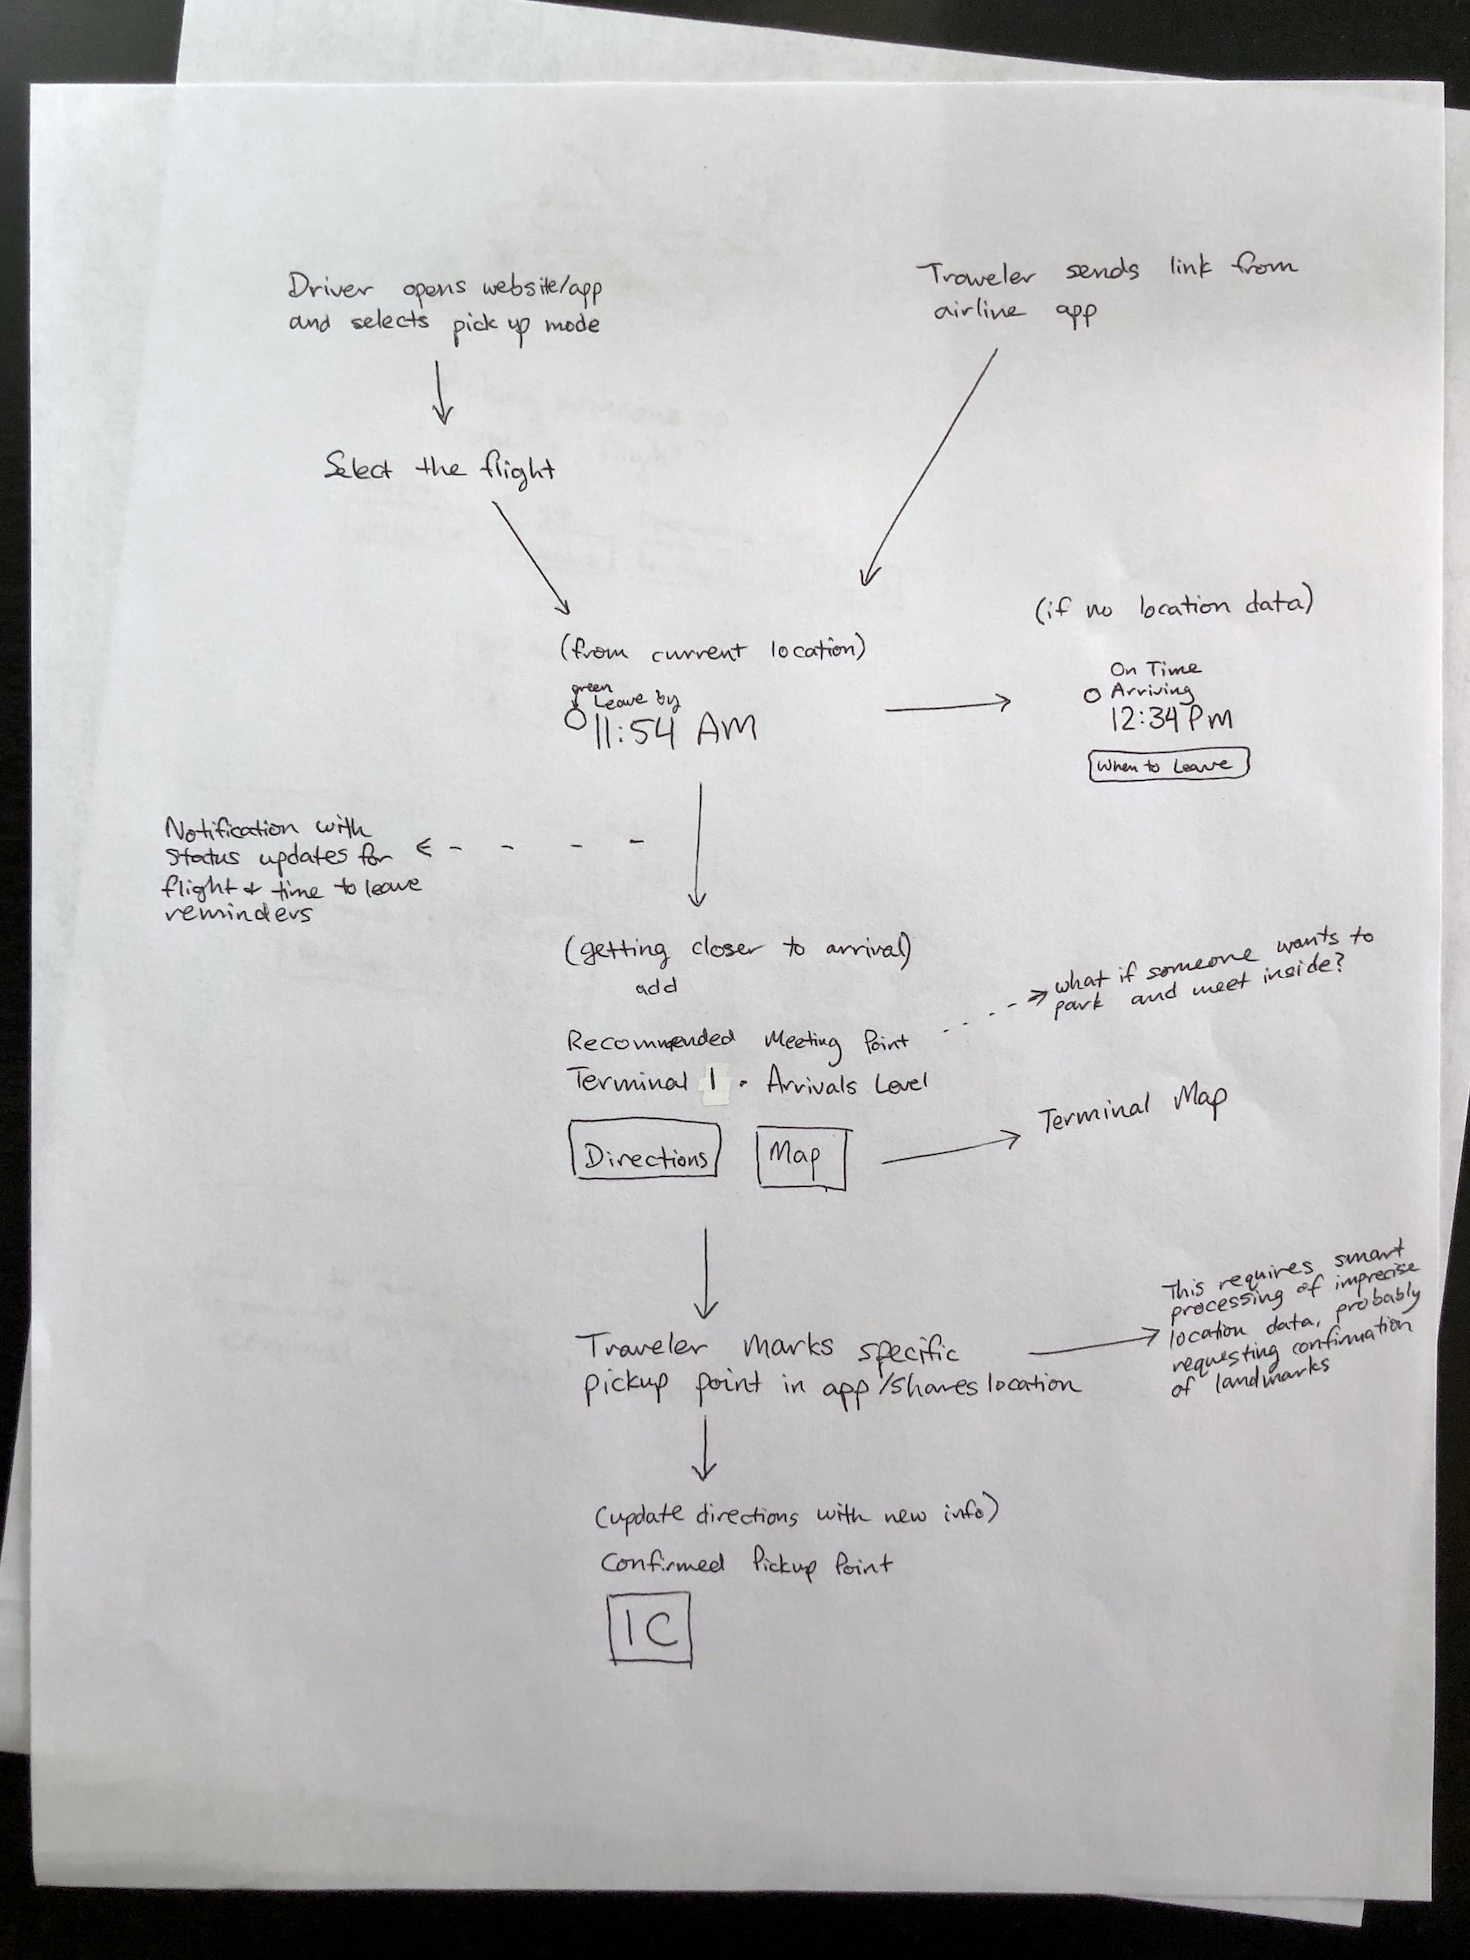 Driver opens website/app
and selects pick up mode
Traveler sends link from
airline app
Select the flight
(from current location)
green
Leave by
11:54 AM
(if no location data)
On Time
Arriving
12:34 PM
When to Leave
Notification with
status updates for
flight + time to leave
reminders
(getting closer to arrival)
add
Recommended Meeting Point
Terminal 1 · Arrivals Level
what if someone wants to
park and meet inside?
Directions
Map
Terminal Map
Traveler marks specific
pickup point in app/shares location
This requires smart
processing of imprecise
location data, probably
requesting confirmation
of landmarks
(update directions with new info)
Confirmed Pickup Point
1C